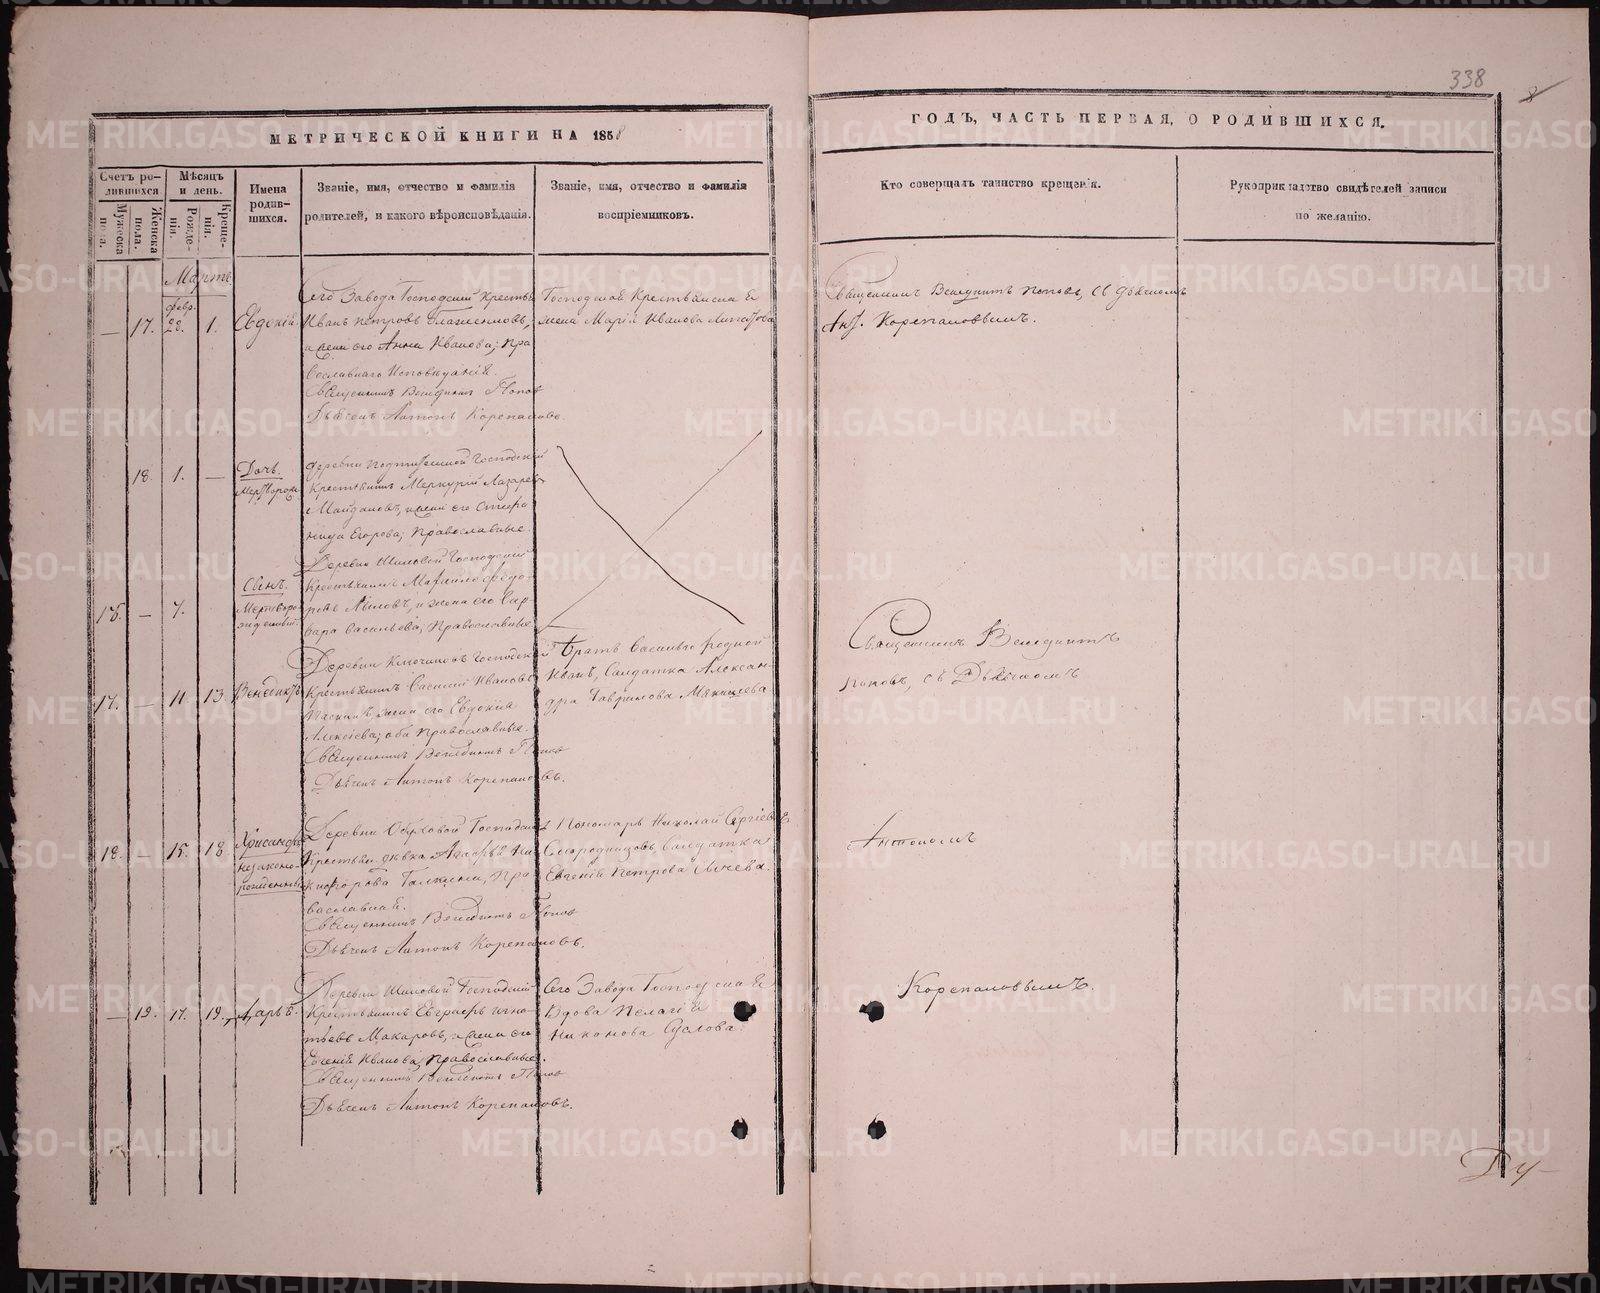 338
8
МЕТРИЧЕСКОЙ КНИГИ НА 1858
ГОДЪ, ЧАСТЬ ПЕРВАЯ, О РОДИВШИХСЯ.
Счетъ родившихся
Мужеска пола.
Женска пола.
Мѣсяцъ и день.
Рожденія.
Крещенія.
Имена родившихся.
Званіе, имя, отчество и фамилія
родителей, и какого вѣроисповѣданія.
Званіе, имя, отчество и фамилія
воспріемниковъ.
Кто совершалъ таинство крещенія.
Рукоприкладство свидѣтелей записи
по желанію.
Мартъ
— 17. февр. 22. 1. Евдокія
Сего Завода Господскій Крестья
Иванъ Петровъ
жена его Анна Иванова; Пра
вославнаго Исповѣданія.
Священникъ Венедиктъ Попов
Дьячекъ Антонъ Корепановъ.
Господская Крестьянская
жена Марія Иванова
Священникъ Венедиктъ Поповъ, съ Дьячкомъ
Ант. Корепановымъ.
18. 1. — Дочь.
мертворож
деревни Господскій
Крестьянинъ Меркурій Лазарев
жена его
Егорова; Православные.
16. — 7. Сынъ.
Мертворо
жденный.
Деревни Шиловой Господскій
Крестьянинъ
и жена его Вар
вара Васильева, Православные
17. — 11. 13. Венедиктъ
Деревни Ключиковъ Господскій
Крестьянинъ Василій Ивановъ
жена его Евдокія
Алексіева; оба Православные.
Священникъ Венедиктъ Попов
Дьячекъ Антонъ Корепановъ.
Братъ Василья родной
Иванъ, Солдатка Алексан
дра Гаврилова
Священникъ Венедиктъ
Поповъ, съ Дьячкомъ
18. — 15. 18. Хрисанфъ
незаконо-
рожденный
Деревни Обуховой Господская
Крестьян. дѣвка Агафья Ни
кифорова Галкина, Пра
вославная.
Священникъ Венедиктъ Попов
Дьячекъ Антонъ Корепановъ.
Пономарь Николай Сергіевъ
Смородинцовъ солдатка
Евгенія Петрова Сычева.
Антономъ
— 19. 17. 19. Дарья
Деревни Шиловой Господскій
Крестьянинъ Евграфъ Игна
тьевъ Макаровъ, жена его
Евгенія Иванова, Православные.
Священникъ Венедиктъ Попов
Дьячекъ Антонъ Корепановъ.
Сего Завода Господская
Вдова Пелагія
Никонова Суслова.
Корепановымъ.
METRIKI.GASO-URAL.RU